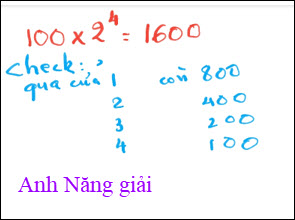 100 x 2⁴ = 1600
check:
qua cửa 1 còn 800
2 400
3 200
4 100
Anh Năng giải